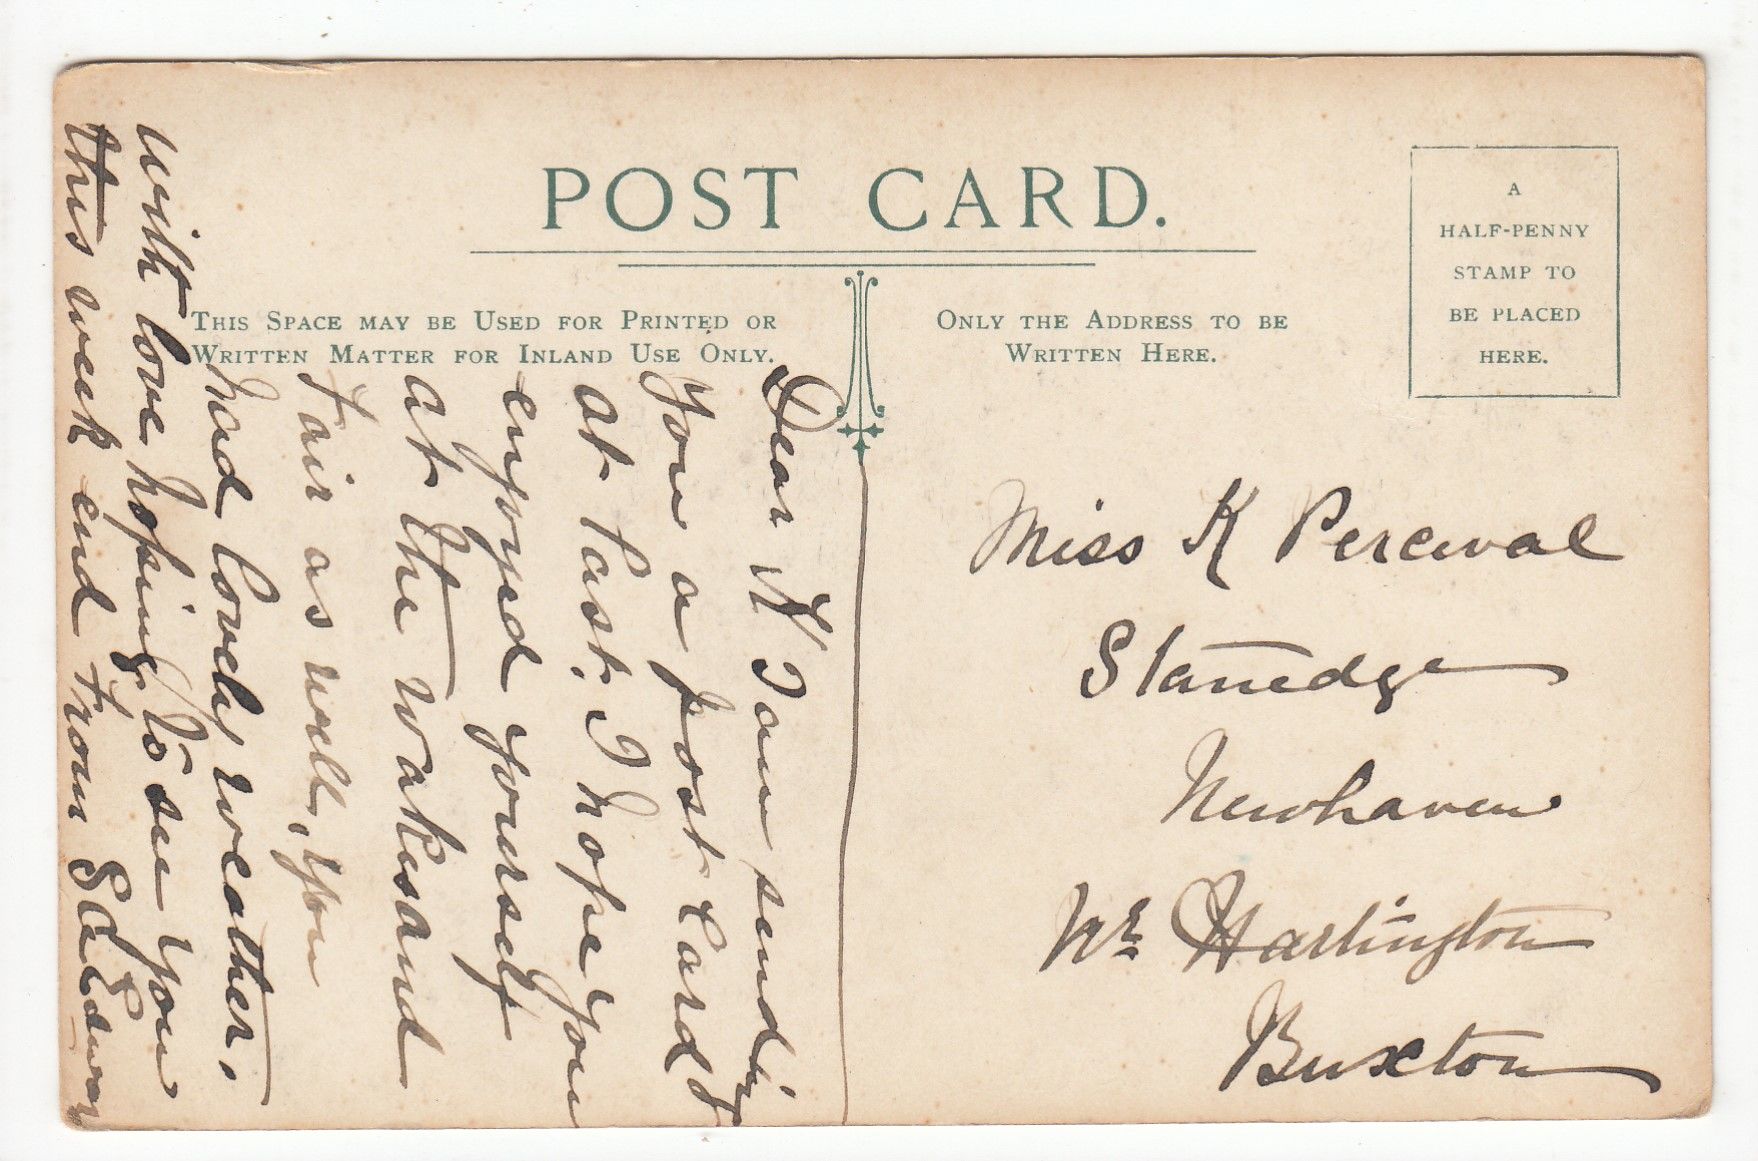 POST CARD.
THIS SPACE MAY BE USED FOR PRINTED OR
WRITTEN MATTER FOR INLAND USE ONLY.
ONLY THE ADDRESS TO BE
WRITTEN HERE.
A
HALF-PENNY
STAMP TO
BE PLACED
HERE.
Dear K I am sending
you a post card
at last. I hope you
enjoyed yourself
at the wakes and
Fair as well, you
had lovely weather.
with love hoping to see you
this week end from S
Miss K Percival
Stanedge
Newhaven
Nr Hartington
Buxton